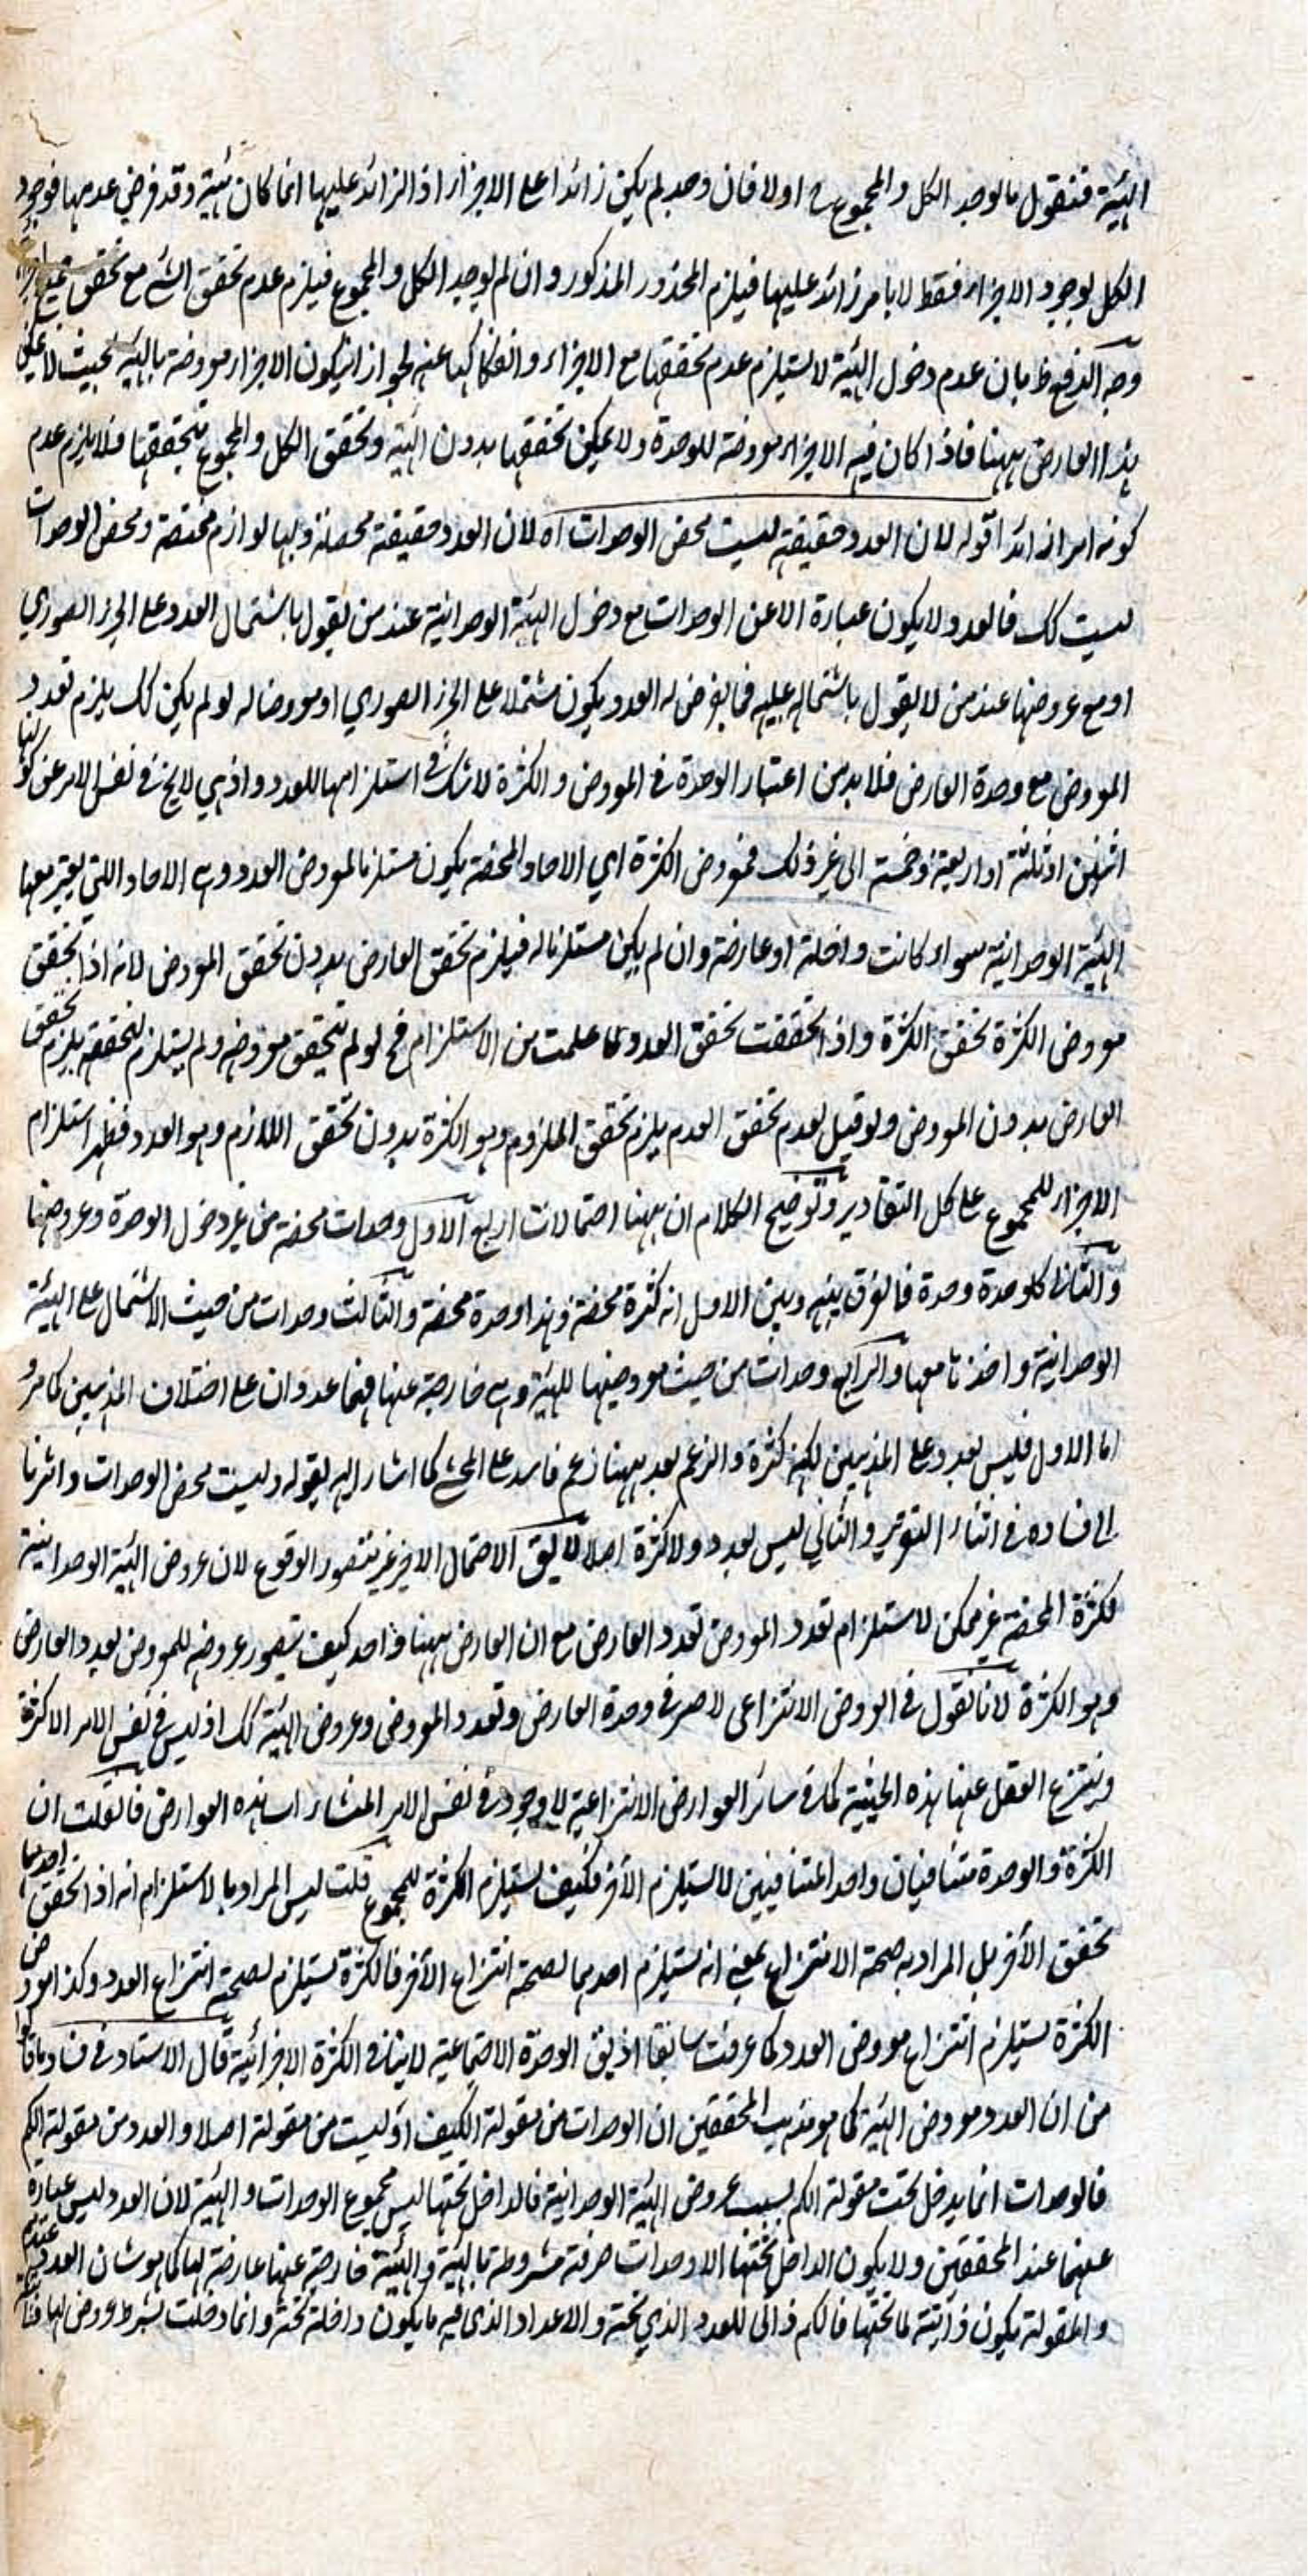 الهيئة فنقول ما لوجد الكل والمجموع ح اولا فان وجد لم يكن زائدا على الاجزاء اذ الزائد عليها انما كان هيئة وقد فرض عدمها فوجود
الكل بوجود الاجزاء فقط لا بامر زائد عليها فيلزم المحذور المذكور وان لم يوجد الكل والمجموع فيلزم عدم تحقق الشئ مع تحقق جميع اجزائه
وجه الدفع ظ بان عدم دخول الهيئة لا يستلزم عدم تحققها مع الاجزاء وانفكاكها عنه لجواز ان يكون الاجزاء معروضة بالهيئة بحيث لا يمكن
هذا العارض ههنا فاذا كان فيه الاجزاء معروضة للوحدة ولا يمكن تحققها بدون الهيئة وتحقق الكل والمجموع بتحققها فلا يلزم عدم
كونه امرا زائدا قوله لان العدد حقيقته ليست محض الوحدات اه لان العدد حقيقة محصلة ولها لوازم مختصة ومحض الوحدات
ليست كك فالعدد لا يكون عبارة الا عن الوحدات مع دخول الهيئة الوحدانية عند من يقول باشتمال العدد على الجزء الصوري
او مع عروضها عند من لا يقول باشتماله عليه فما يعرض له العدد يكون مشتملا على الجزء الصوري او معروضا له لو لم يكن كك يلزم تعدد
المعروض مع وحدة العارض فلا بد من اعتبار الوحدة في المعروض والكثرة لا شك في استلزامها للعدد اذ هي لا يخ في نفس الامر عن كونها
اثنين او ثلثة او اربعة وخمسة الى غير ذلك فمعروض الكثرة اي الاحاد المحضة يكون مستلزما لمعروض العدد وهي الاحاد اللتي يعتبر معها
الهيئة الوحدانية سواء كانت داخلة او عارضة وان لم يكن مستلزما له فيلزم تحقق العارض بدون تحقق المعروض لانه اذا تحقق
معروض الكثرة تحقق الكثرة واذا تحققت تحقق العدد لما علمت من الاستلزام فح لو لم يتحقق معروضه ولم يستلزم لتحققه يلزم تحقق
العارض بدون المعروض ولو قيل بعدم تحقق العدم يلزم تحقق الملزوم وهو الكثرة بدون تحقق اللازم وهو العدد فظهر استلزام
الاجزاء للمجموع على كل التقادير وتوضيح الكلام ان ههنا احتمالات اربع الاول وحدات محضة من غير دخول الوحدة وعروضها
والثاني كل وحدة وحدة فالفرق بينه وبين الاول انه كثرة محضة وهذا وحدة محضة والثالث وحدات من حيث الاشتمال على الهيئة
الوحدانية واخذنا معها والرابع وحدات من حيث معروضيتها للهيئة وهي خارجة عنها فهما عددان على اختلاف المذهبين كما مر
اما الاول فليس بعدد على المذهبين لكنه كثرة والزعم بعد ههنا زعم فاسد على المحشي كما اشار اليه بقوله وليست محض الوحدات واشرنا
الى فساده في اثناء التقرير والثاني ليس بعدد ولا كثرة اصلا لا يق الاحتمال الاخير غير متصور الوقوع لان عروض الهيئة الوحدانية
لكثرة المحضة غير ممكن لاستلزام تعدد المعروض تعدد العارض مع ان العارض ههنا واحد كيف يتصور عروضه للمعروض بعدد العارض
وهو الكثرة لانا نقول في العروض الانتزاعى لا ضر في وحدة العارض وتعدد المعروض وعروض الهيئة كك اذ ليس في نفس الامر الا كثرة
وينتزع العقل عنها هذه الحيثية كما في سائر العوارض الانتزاعية لا وجود في نفس الامر لمنشاء انتساب هذه العوارض فان قلت ان
الكثرة والوحدة متنافيان واحد المتنافيين لا يستلزم الآخر فكيف يستلزم الكثرة للمجموع قلت ليس المراد بالاستلزام انه اذا تحقق احدهما
تحقق الآخر بل المراد به صحة الانتزاع بمعنى انه يستلزم احدهما لصحة انتزاع الآخر فالكثرة يستلزم لصحة انتزاع العدد وكذا معروض
الكثرة يستلزم انتزاع معروض العدد كما عرفت سابقا اذ يق الوحدة الاجتماعية لا ينافي الكثرة الاجزائية قال الاستاد في فساد ما قالوا
من ان العدد معروض الهيئة كما هو مذهب المحققين ان الوحدات من مقولة الكيف او ليست من مقولة اصلا والعدد من مقولة الكم
فالوحدات انما يدخل تحت مقولة الكم بسبب عروض الهيئة الوحدانية فالداخل تحتها ليس مجموع الوحدات والهيئة لان العدد ليس عبارة
عنهما عند المحققين ولا يكون الداخل تحتها الا وحدات صرفة مشروطة بالهيئة والهيئة خارجة عنها عارضة لها كما هو شان العدد عندهم
والمقولة يكون ذاتية لما تحتها فالكم ذاتى للعدد الذي تحته والاعداد الذى فيه ما يكون داخلة تحته وانما دخلت بشرط عروض لها